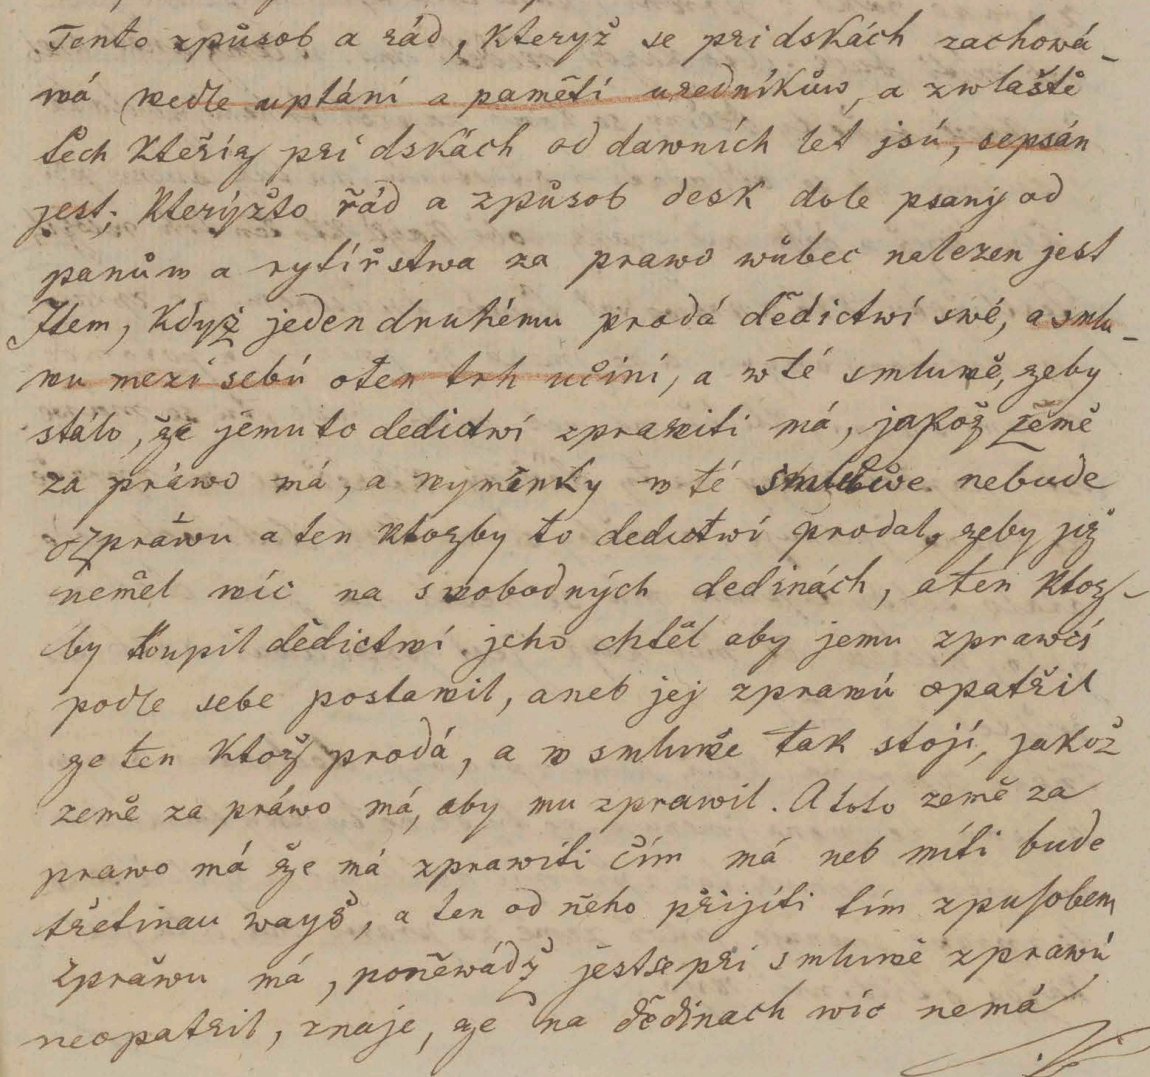 Tento zpùsob a rád, kteryž se pri dskách zachowá-
wá wedle uptání a paměti uredníkůw, a zwlaště
těch kteříz pri dskách od dawních let jsú, sepsán
jest; kterýžto řád a způsob desk dole psaný od
panům a rytířstwa za prawo wůbec nalezen jest
Item, když jeden druhému prodá dědictwí swé, a smlu-
wu mezi sebú o ten trh učiní, a w té smluwě, zeby
stálo, že jemu to dedictwí zprawiti má, jakož země
za práwo má, a wyměnky w té nebude
o zpráwu a ten ktozby to dedictwí prodal, zeby již
neměl wíc na swobodných dedinách, a ten ktoz-
by koupil dědictwí jeho chtěl aby jemu zprawcí
podle sebe postawil, aneb jej zprawú opatřil
ze ten ktož prodá, a w smluwe tak stojí, jakož
země za práwo má, aby mu zprawil. A toto země za
prawo má že má zprawiti čím má neb míti bude
třetinau wayš, a ten od něho přijíti tím zpusobem
zpráwu má, poněwádž jest se pri smluwě zprawú
neopatřil, znaje, ze na dědinach wíc nemá